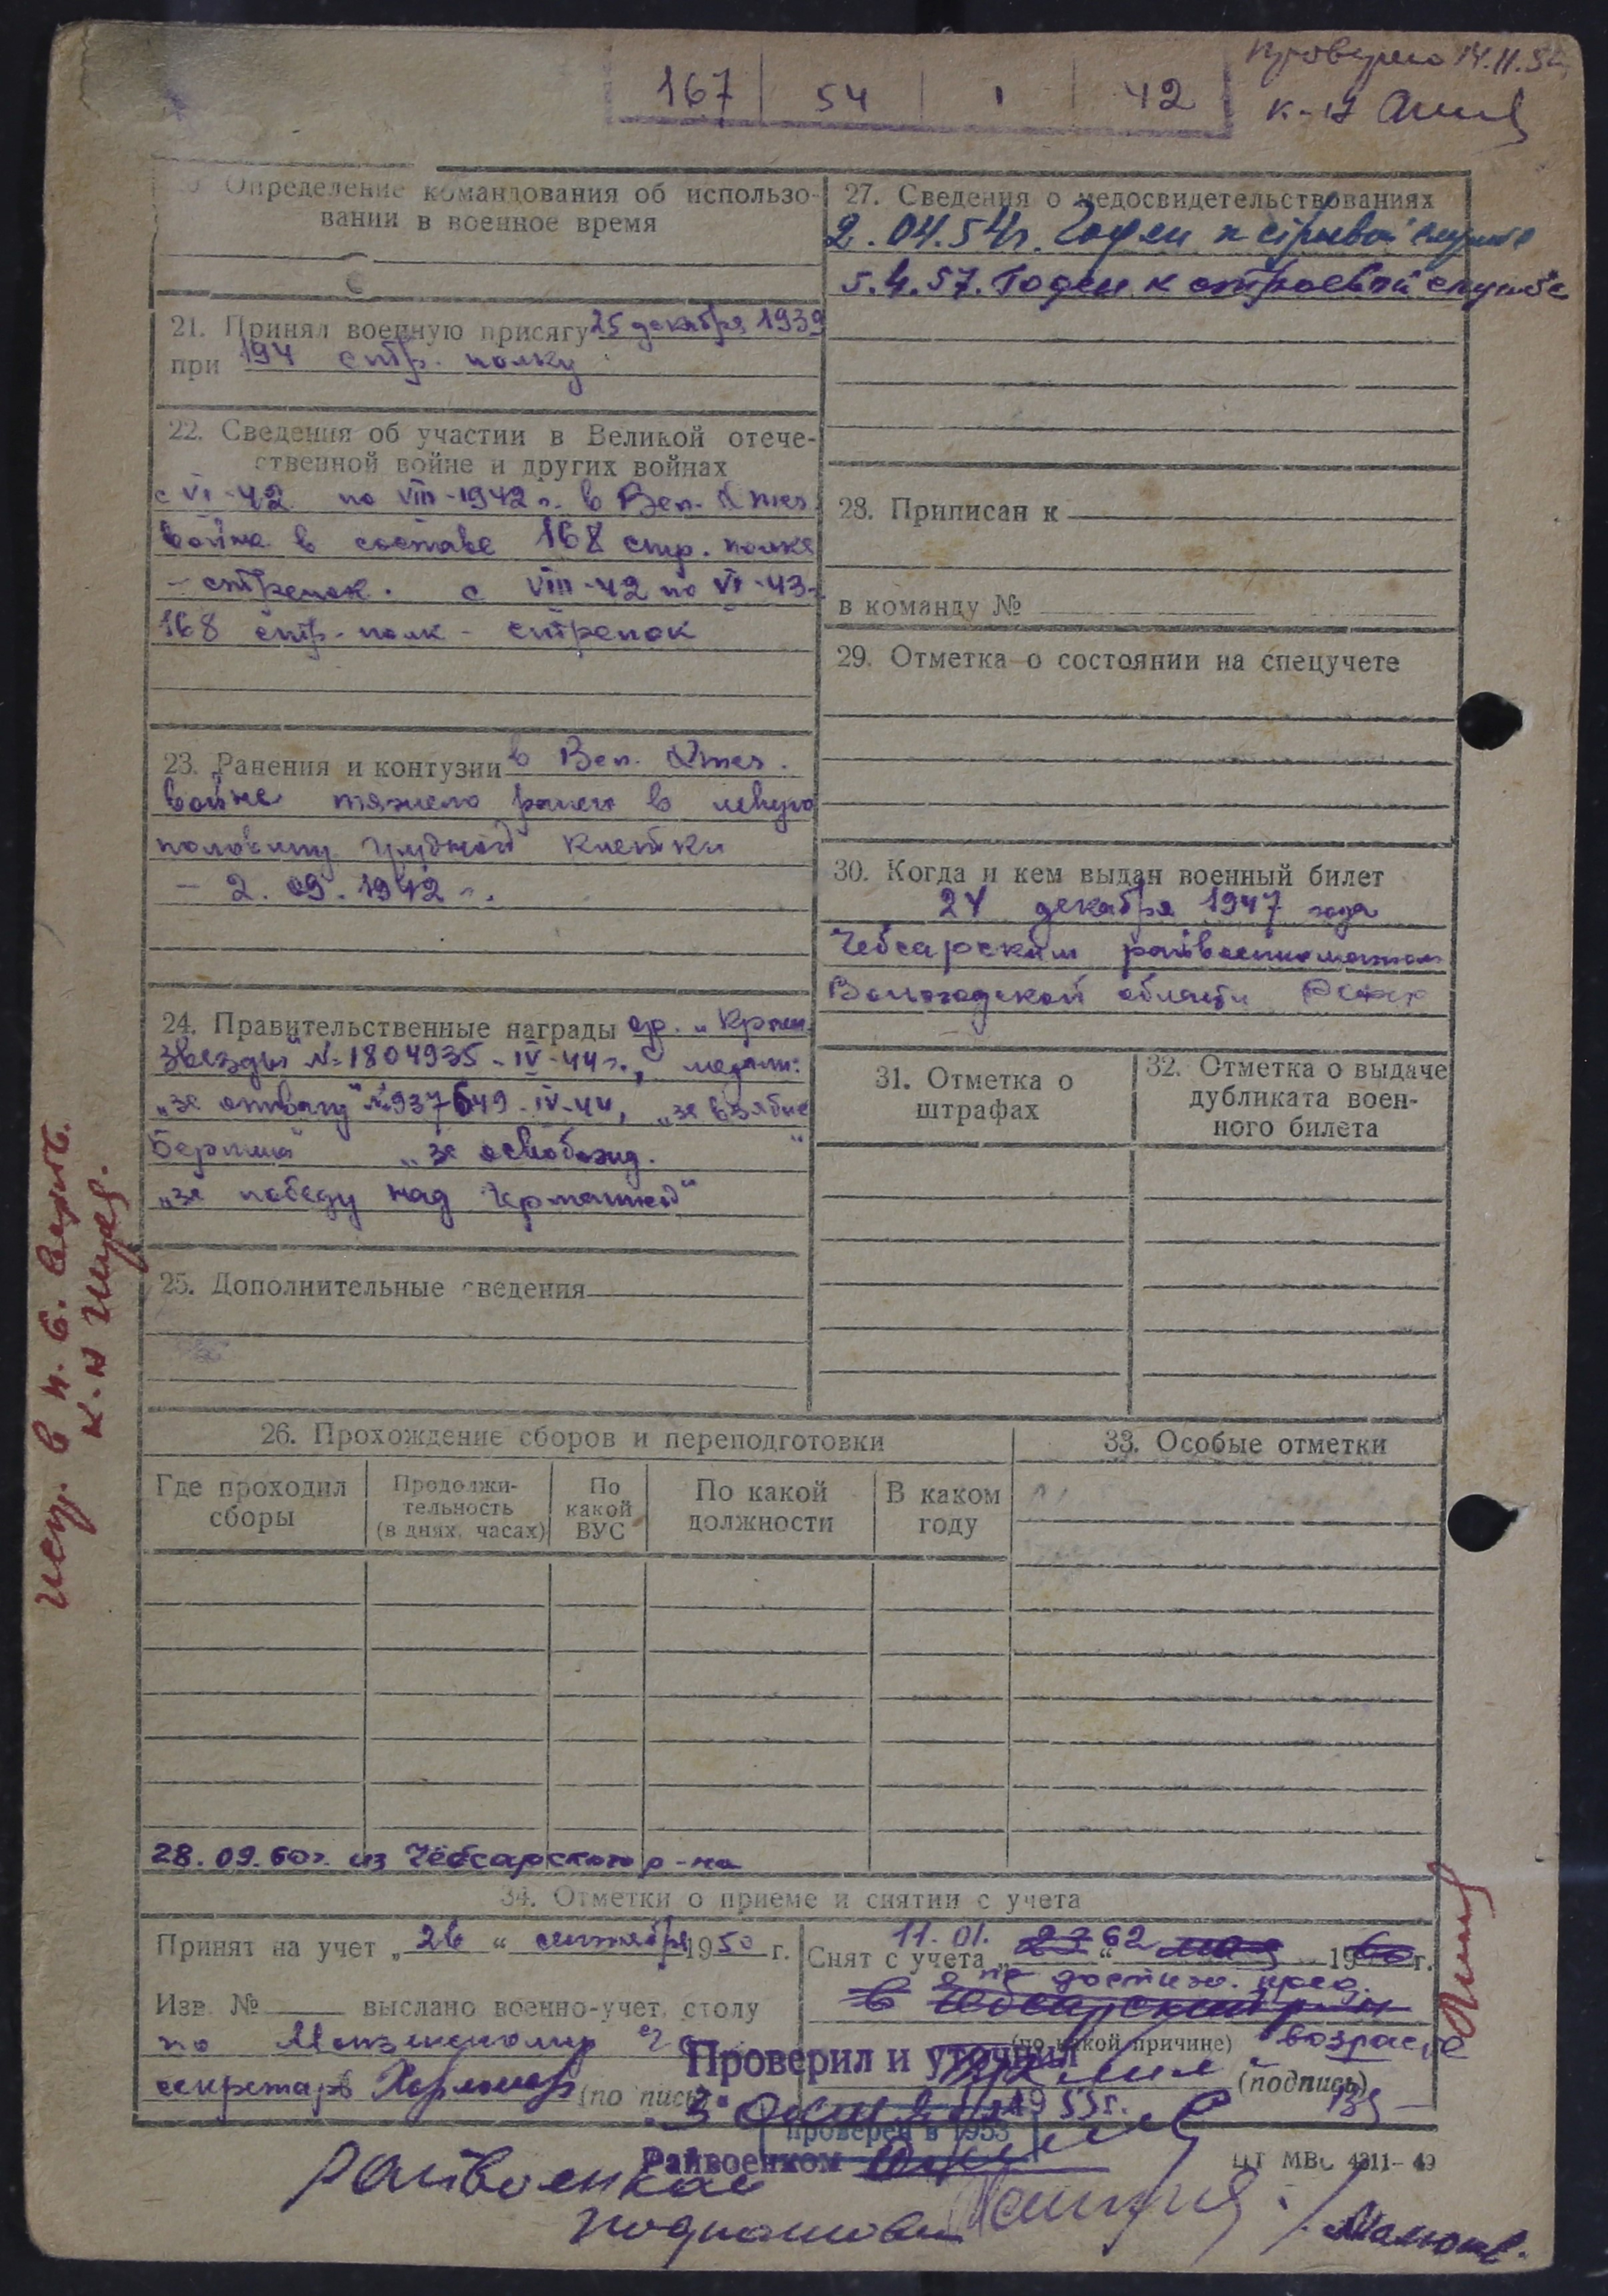 167 54 1 42
Проверено 14.11.5
к-н
20. Определение командования об использо-
вании в военное время
21. Принял военную присягу 25 декабря 1939
при 194 стр. полку
22. Сведения об участии в Великой отече-
ственной войне и других войнах
с VI-42 по VIII-1942 г. в Вел. Отеч.
война в составе 168 стр. полка
- стрелок. с VIII-42 по VI-43г.
168 стр. полк - стрелок
23. Ранения и контузии в Вел. Отеч.
войне тяжело ранен в левую
половину грудной клетки
- 2.09.1942 г.
24. Правительственные награды ор. „Красн.
звезды" №1804935-IV-44г., медали:
„за отвагу" №937649-IV-44, „за взятие
Берлина" „за освобожд. "
„за победу над Германией"
25. Дополнительные сведения
27. Сведения о медосвидетельствованиях
2.04.54г. Годен к строевой службе
5.4.57. Годен к строевой службе
28. Приписан к
в команду №
29. Отметка о состоянии на спецучете
30. Когда и кем выдан военный билет
24 декабря 1947 года
Чебсарским райвоенкоматом
Вологодской области РСФСР
31. Отметка о
штрафах
32. Отметка о выдаче
дубликата воен-
ного билета
26. Прохождение сборов и переподготовки
Где проходил
сборы
Продолжи-
тельность
(в днях, часах)
По
какой
ВУС
По какой
должности
В каком
году
33. Особые отметки
28.09.60г. из Чебсарского р-на
34. Отметки о приеме и снятии с учета
Принят на учет „26" сентября 1950 г.
Изв. № выслано военно-учет. столу
по
секретарь (подпись)
11.01. 62
Снят с учета „ " 19 г.
по достиж. пред.
в Чебсарский р-н
(по какой причине) возраста
(подпись)
Проверил и уточнил
„3" 1953г.
проверен в 1953
Райвоенком
ЦТ МВС 4311-49
Райвоенком
подполковник
исп. в н.
к-н